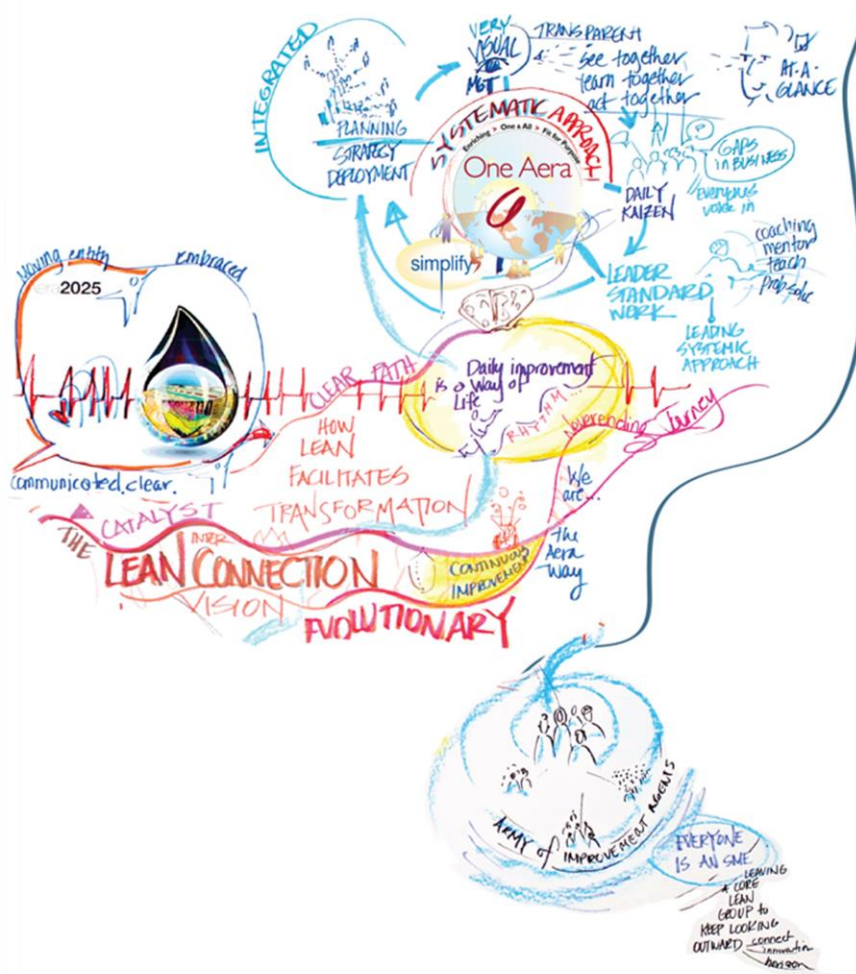 INTEGRATED
PLANNING
STRATEGY
DEPLOYMENT
VERY
VISUAL
MGT
TRANSPARENT
see together
learn together
act together
AT-A-
GLANCE
SYSTEMATIC APPROACH
Enriching > One & All > Fit for Purpose
One Aera
simplify
GAPS
IN BUSINESS
DAILY
KAIZEN
EVERYONE'S
coaching
mentor
teach
prob-solve
LEADER
STANDARD
WORK
LEADING
SYSTEMIC
APPROACH
Moving entity
embraced
2025
communicated.clear.
CLEAR PATH
Daily improvement
is a way of
Life
RHYTHM...
Neverending Journey
HOW
LEAN
FACILITATES
TRANSFORMATION
We
are...
the
Aera
Way
CATALYST
THE
LEAN INTER CONNECTION
VISION
CONTINUOUS
IMPROVEMENT
EVOLUTIONARY
ARMY of IMPROVEMENT AGENTS
EVERYONE
IS AN SME
LEAVING
A CORE
LEAN
GROUP to
KEEP LOOKING
OUTWARD connect
innovation
horizon